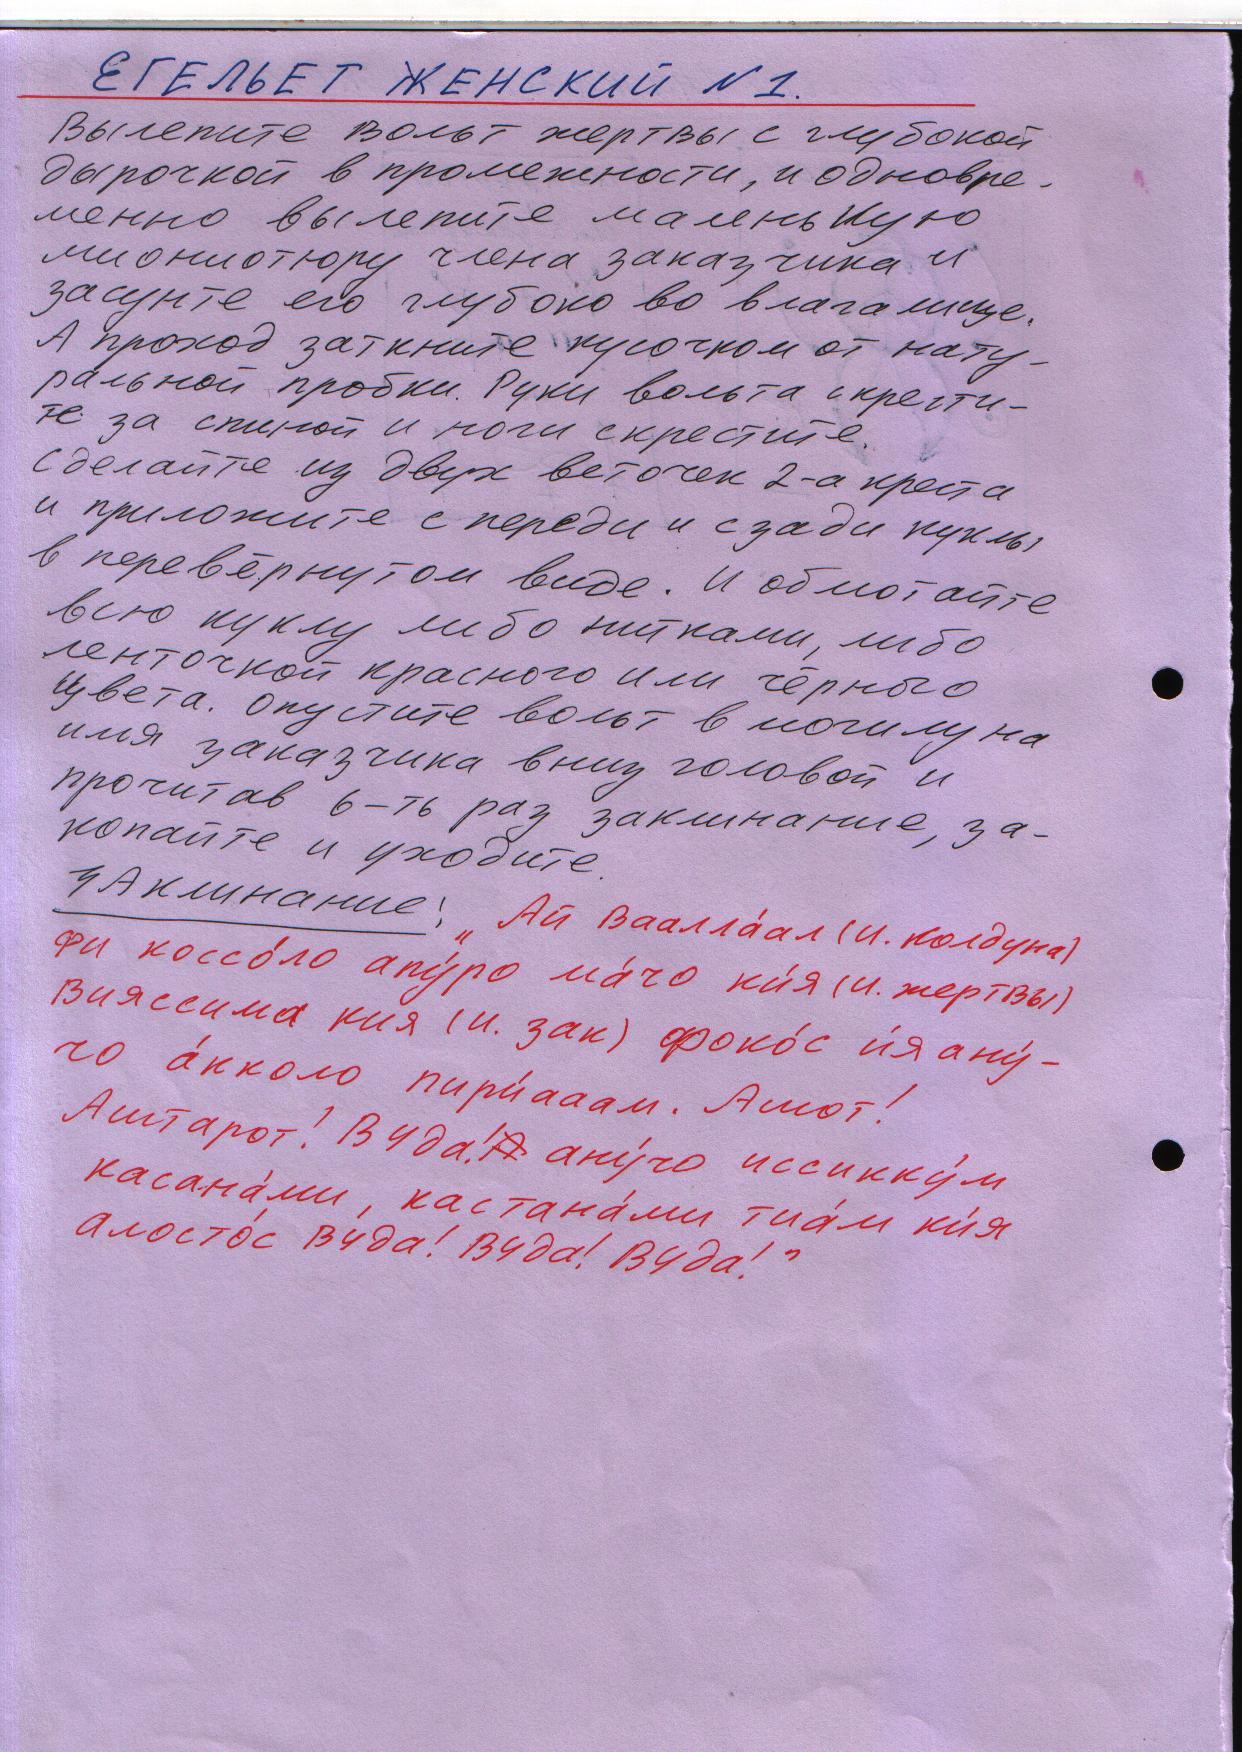 ЕГЕЛЬЕТ ЖЕНСКИЙ N 1.
Вылепите вольт жертвы с глубокой
дырочкой в промежности, и одновре-
менно вылепите маленькую
миониотюру члена заказчика и
засуньте его глубоко во влагалище.
А проход заткните кусочком от нату-
ральной пробки. Руки вольта скрести-
те за спиной и ноги скрестите.
Сделайте из двух веточек 2-а креста
и приложите с переди и сзади куклы
в перевёрнутом виде. И обмотайте
всю куклу либо нитками, либо
ленточкой красного или чёрного
цвета. Опустите вольт в могилу на
имя заказчика вниз головой и
прочитав 6-ть раз заклинание, за-
копайте и уходите.
Заклинание: „Ай Вааллáал (и. колдуна)
фи коссóло апýро мáчо кúя (и. жертвы)
Вияссима кия (и. зак) фокóс úя анý-
чо áкколо пирúааам. Амот!
Аштарот! Вуда! анýчо иссиккýм
касанáми, кастанáми тиáм кúя
алостóс Вуда! Вуда! Вуда!"